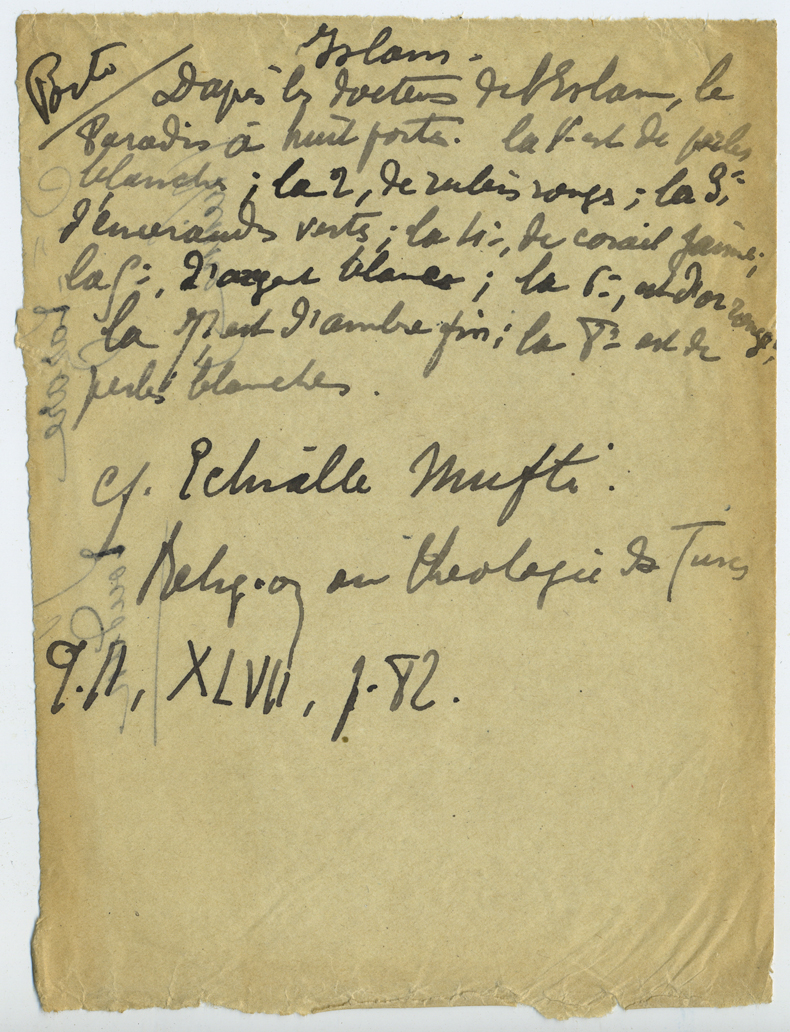 Islam.
Porte
D'après les docteurs de l'Islam, le
Paradis à huit portes. la 1e est de perles
blanches ; la 2, de rubis rouges ; la 3e,
d'émeraudes vertes ; la 4e, de corail jaune ;
la 5e, d'argent blanc ; la 6e, est d'or rouge ;
la 7, est d'ambre fin ; la 8e est de
perles blanches.
cf. Echialle Mufti.
Religion ou théologie des Turcs
XLVII, p. 82.